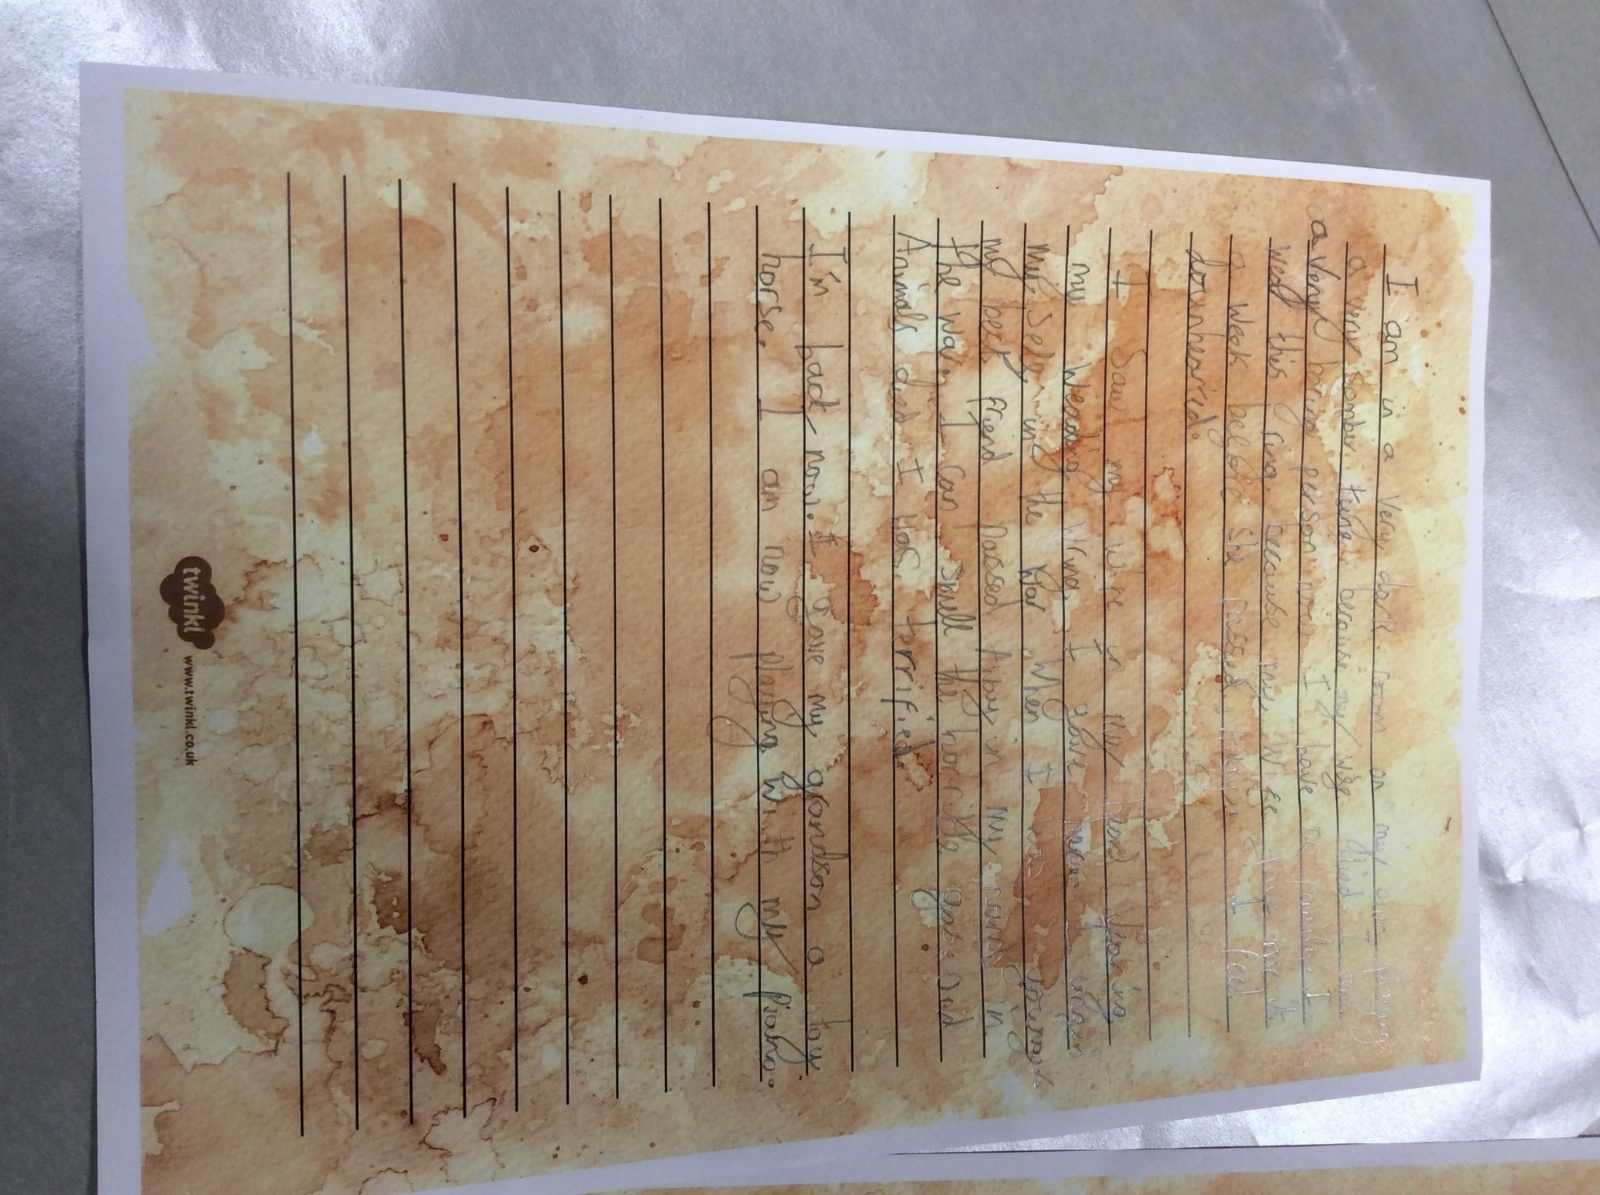 I am in a very dark room on my own playing
a very somber tune because my wife died I am
a very boring person now I have no family I
wear this ring because my wife gave me it
a week before she passed away. I feel
downhearted.
I saw my wife in my
my Weading I gave her when
my self in the War when I was younger.
my best friend Passed Away in my arms in
the war I can smell the horrible gas. Sad
Animals died I was terrified.
I'm back now. I gave my grandson a toy
horse. I am now playing with my piano.
twinkl www.twinkl.co.uk